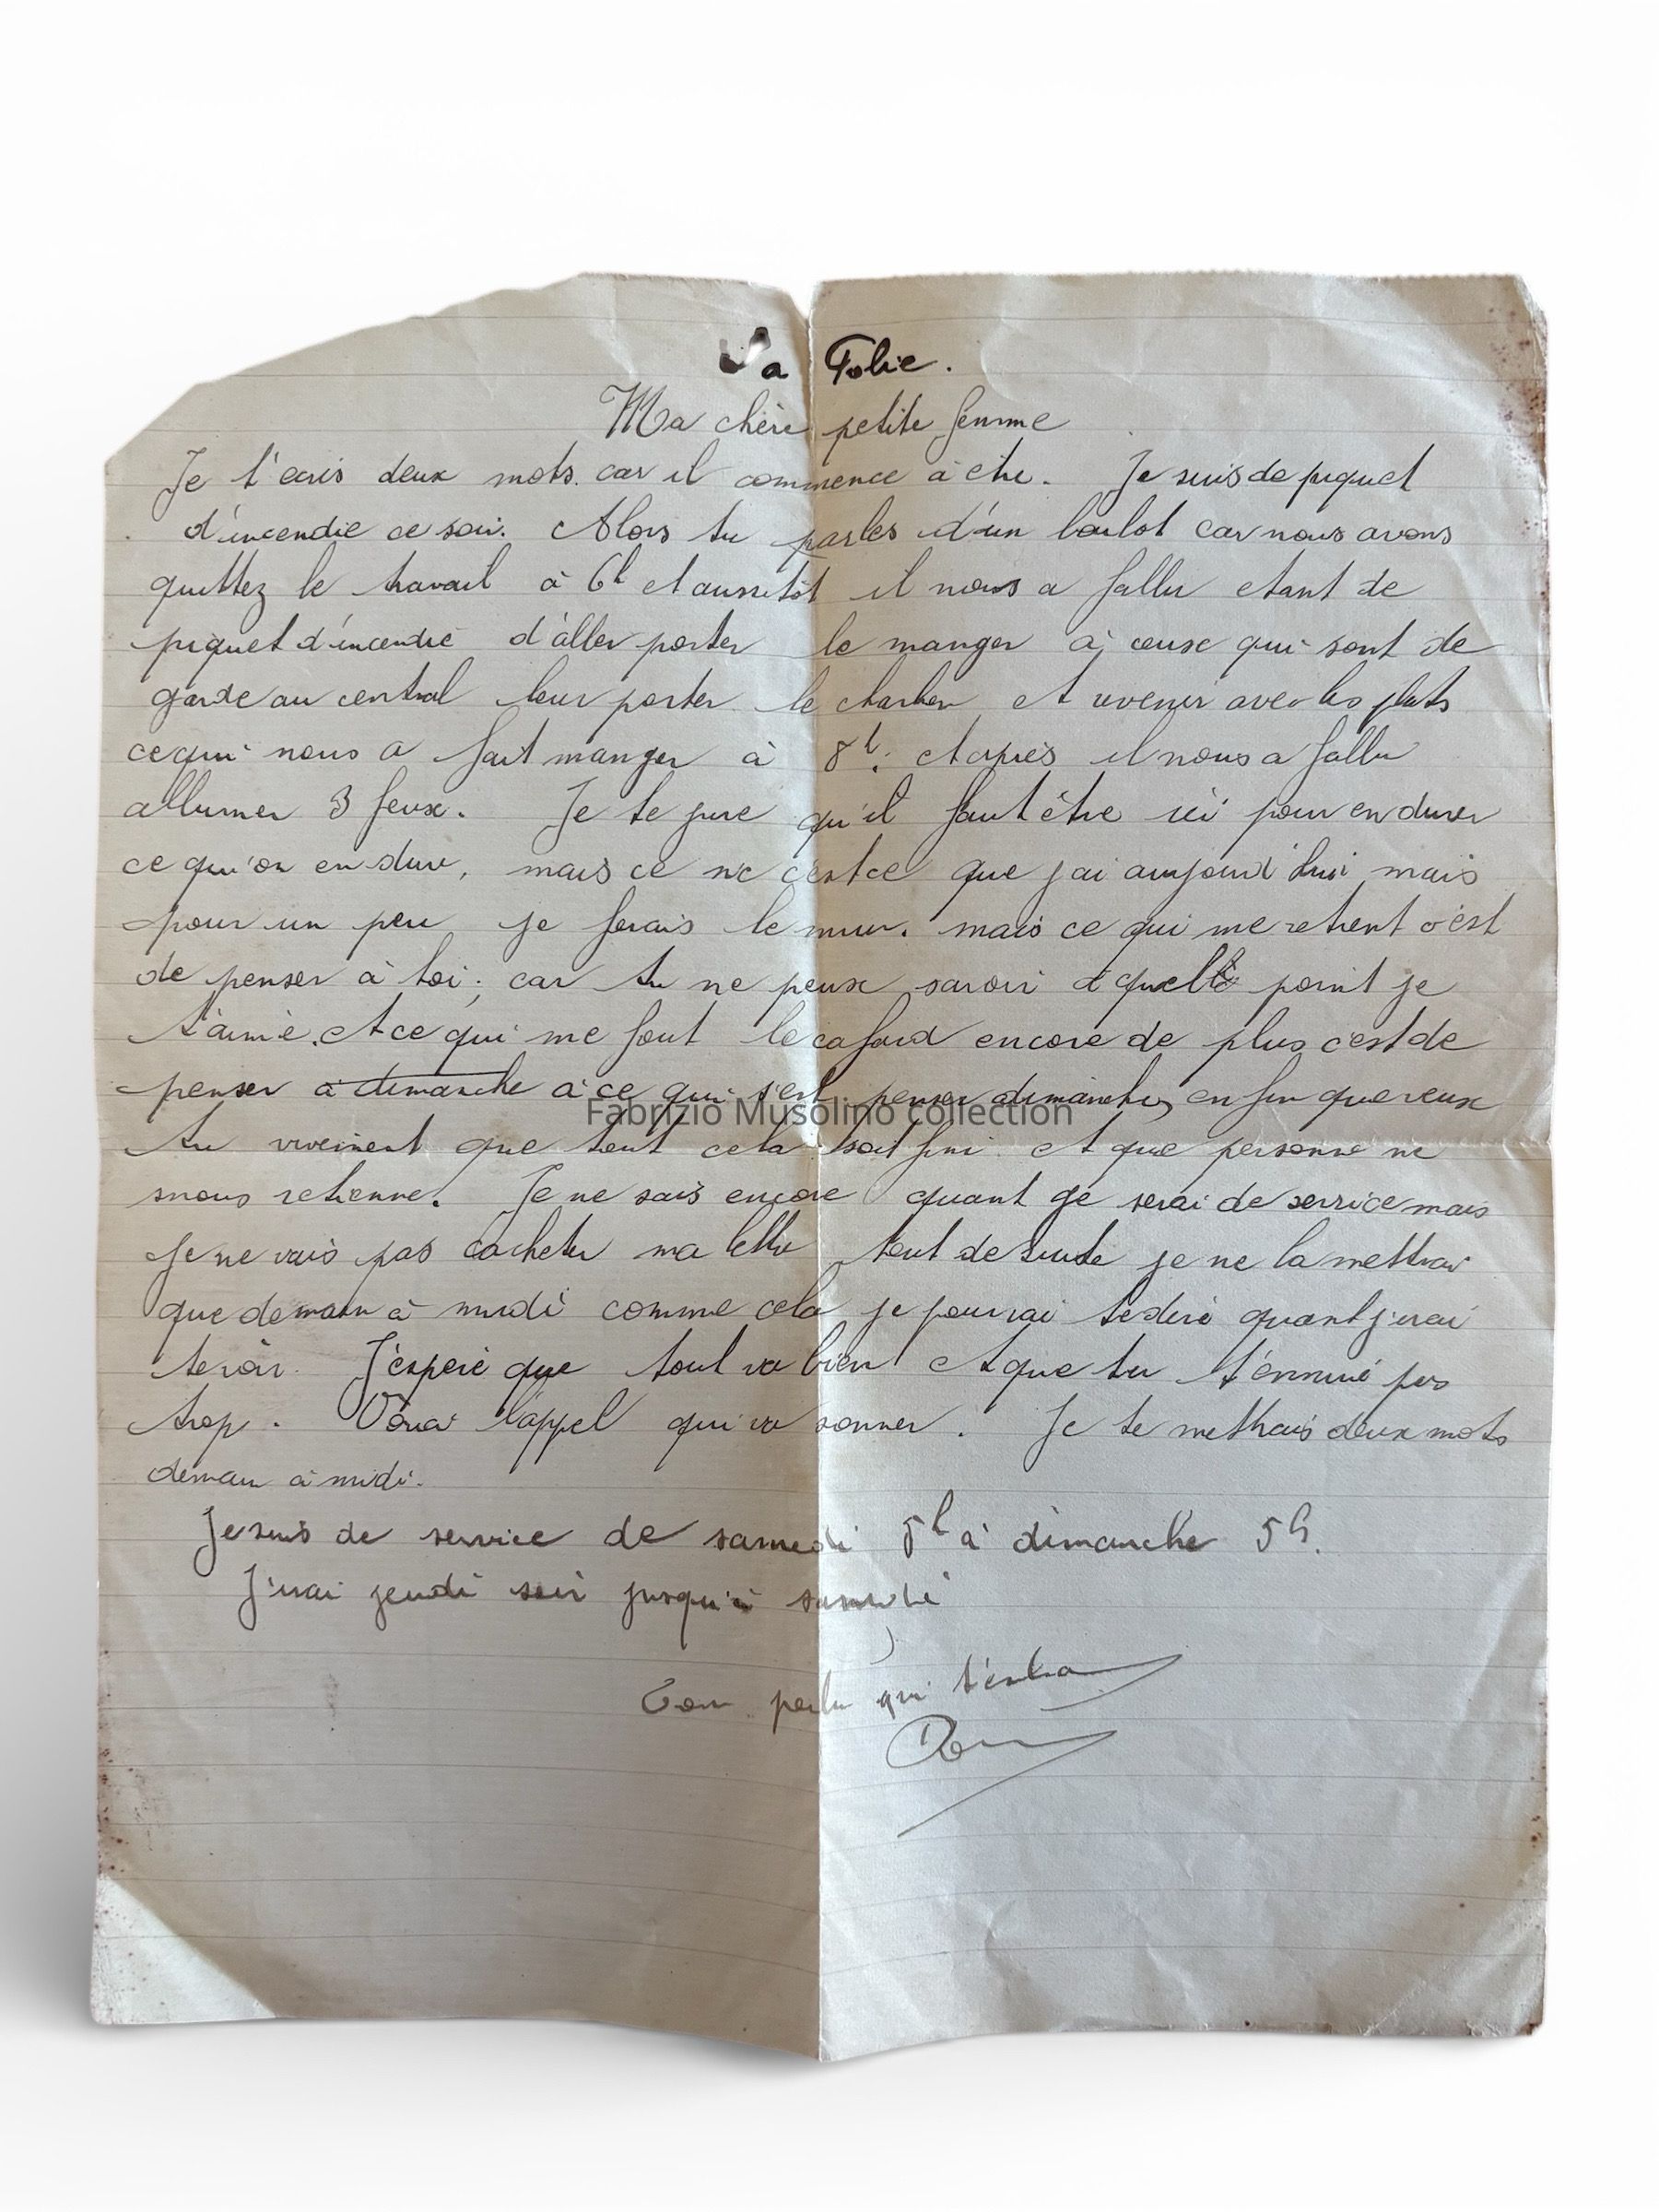 La Folie.
Ma chère petite femme
Je t'ecris deux mots. car il commence à être. Je suis de piquet
d'incendie ce soir. Alors tu parles d'un boulot car nous avons
quittez le travail à 6h et aussitôt il nous a fallu etant de
piquet d'incendie d'aller porter le manger à ceux qui sont de
garde au central leur porter le charbon et revenir avec les plats
ce qui nous a fait manger à 8h. et après il nous a fallu
allumer 3 feux. Je te jure qu'il faut être ici pour endurer
ce qu'on endure, mais ce que j'ai aujourd'hui mais
pour un peu je ferais le mur. mais ce qui me retient c'est
de penser à toi; car tu ne peux savoir quelle point je
t'aime. et ce qui me fout le cafard encore de plus c'est de
penser à dimanche à ce qui s'est penser dimanche, enfin que veux
tu vivement que tout cela soit fini et que personne ne
nous retienne. Je ne sais encore quant je serai de service mais
je ne vais pas cacheter ma lettre tout de suite je ne la mettrai
que demain à midi comme cela je pourrai te dire quant j'irai
te voir. J'espère que tout va bien et que tu t'ennuie pas
trop. Voici l'appel qui va sonner. Je te mettrais deux mots
demain à midi.
Je suis de service de samedi 5h à dimanche 5h.
J'irai jeudi soir jusqu'à samedi
Ton qui
Fabrizio Musolino collection